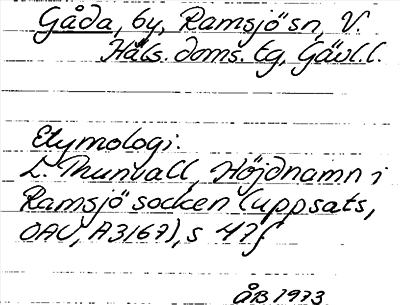 Gåda, by, Ramsjö sn, V.
Häls. doms. tg, Gävl.l.
Etymologi:
L. Thunvall, Höjdnamn i
Ramsjö socken (uppsats,
OAU, A3167), s 47f
ÅB 1973